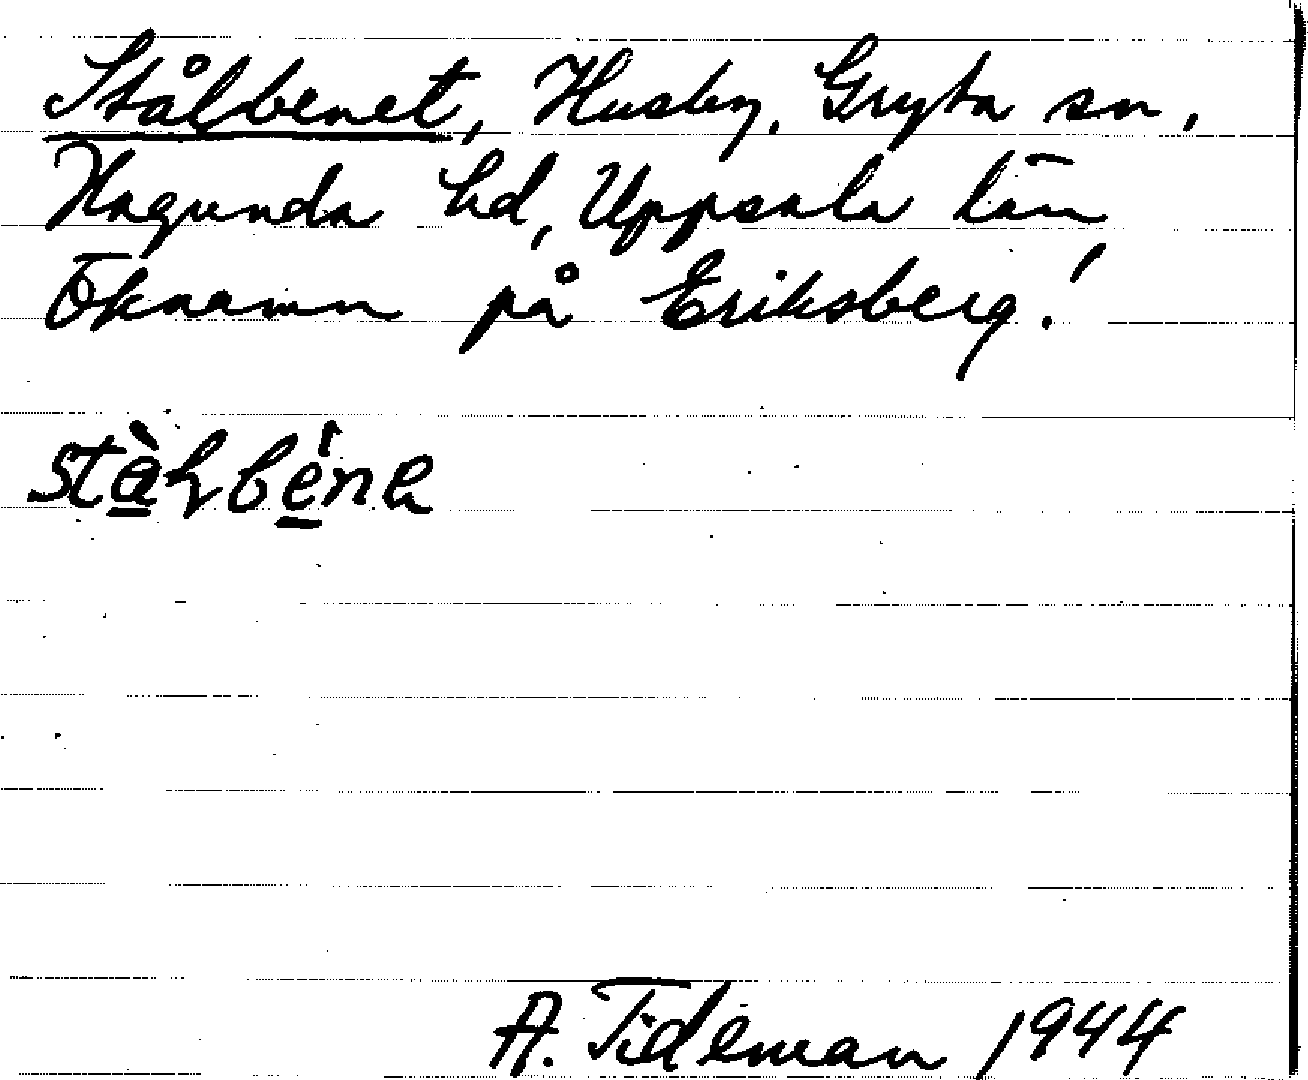 Stålbenet, Husby, Gryta sn,
Hagunda hd, Uppsala län
Öknamn på Eriksberg!
A. Tideman 1944